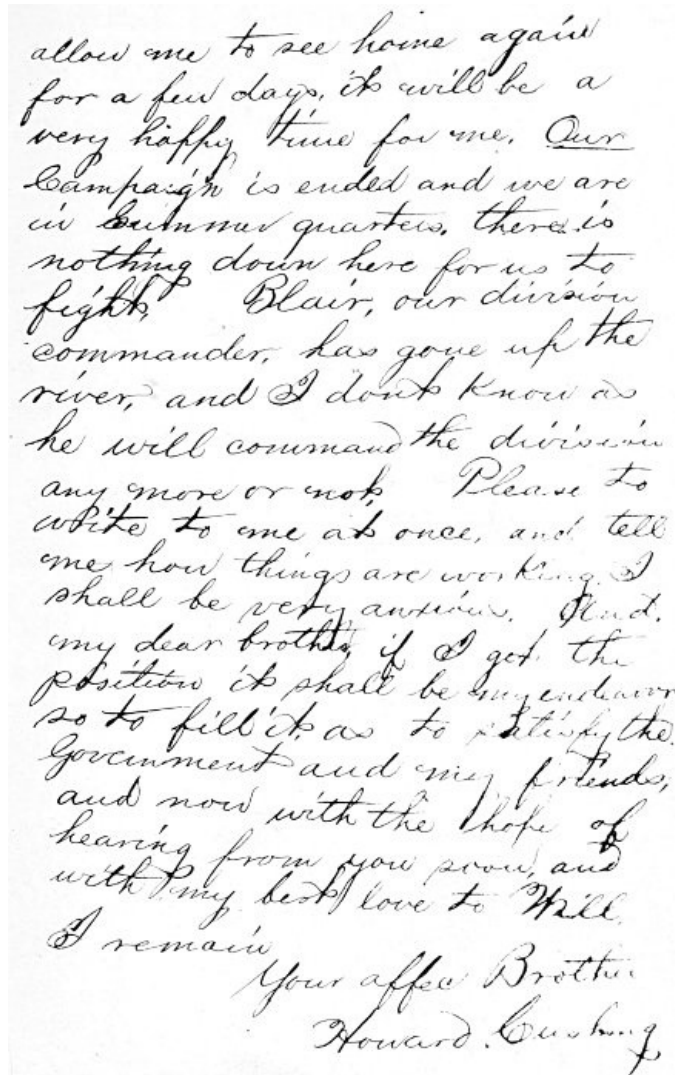 allow me to see home again
for a few days, it will be a
very happy time for me. Our
Campaign is ended and we are
in Summer quarters, there is
nothing down here for us to
fight. Blair, our division
commander, has gone up the
river, and I dont know as
he will command the division
any more or not. Please to
write to me at once, and tell
me how things are working, I
shall be very anxious. And,
my dear brother, if I get the
position it shall be my endeavor
so to fill it as to satisfy the
Government and my friends,
and now with the hope of
hearing from you soon, and
with my best love to Will,
I remain
Your affec Brother
Howard. Cushing